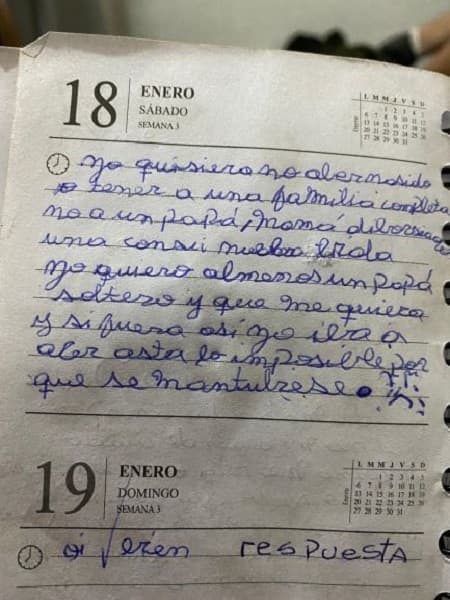 18
ENERO
SÁBADO
SEMANA 3
Enero
L M M J V S D
1 2 3 4 5
6 7 8 9 10 11 12
13 14 15 16 17 18 19
20 21 22 23 24 25 26
27 28 29 30 31
yo quisiera no aber nasido
tener a una familia completa
no a un papá, Mamá
una con su
yo quiero almenos un papá
soltero y que me quiera
y si fuera asi yo a
aser asta lo imposible por
que se
19
ENERO
DOMINGO
SEMANA 3
Enero
L M M J V S D
1 2 3 4 5
6 7 8 9 10 11 12
13 14 15 16 17 18 19
20 21 22 23 24 25 26
27 28 29 30 31
resPUESTA